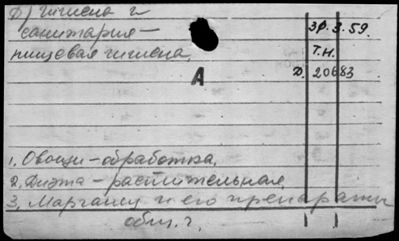 д) Гигиена и
санитария —
пищевая гигиена.
30.3.59.
Т.Н.
А
D. 20683
1. Овощи — обработка.
2. Диэта — растительная.
3. Марганец и его препараты
общ. г.